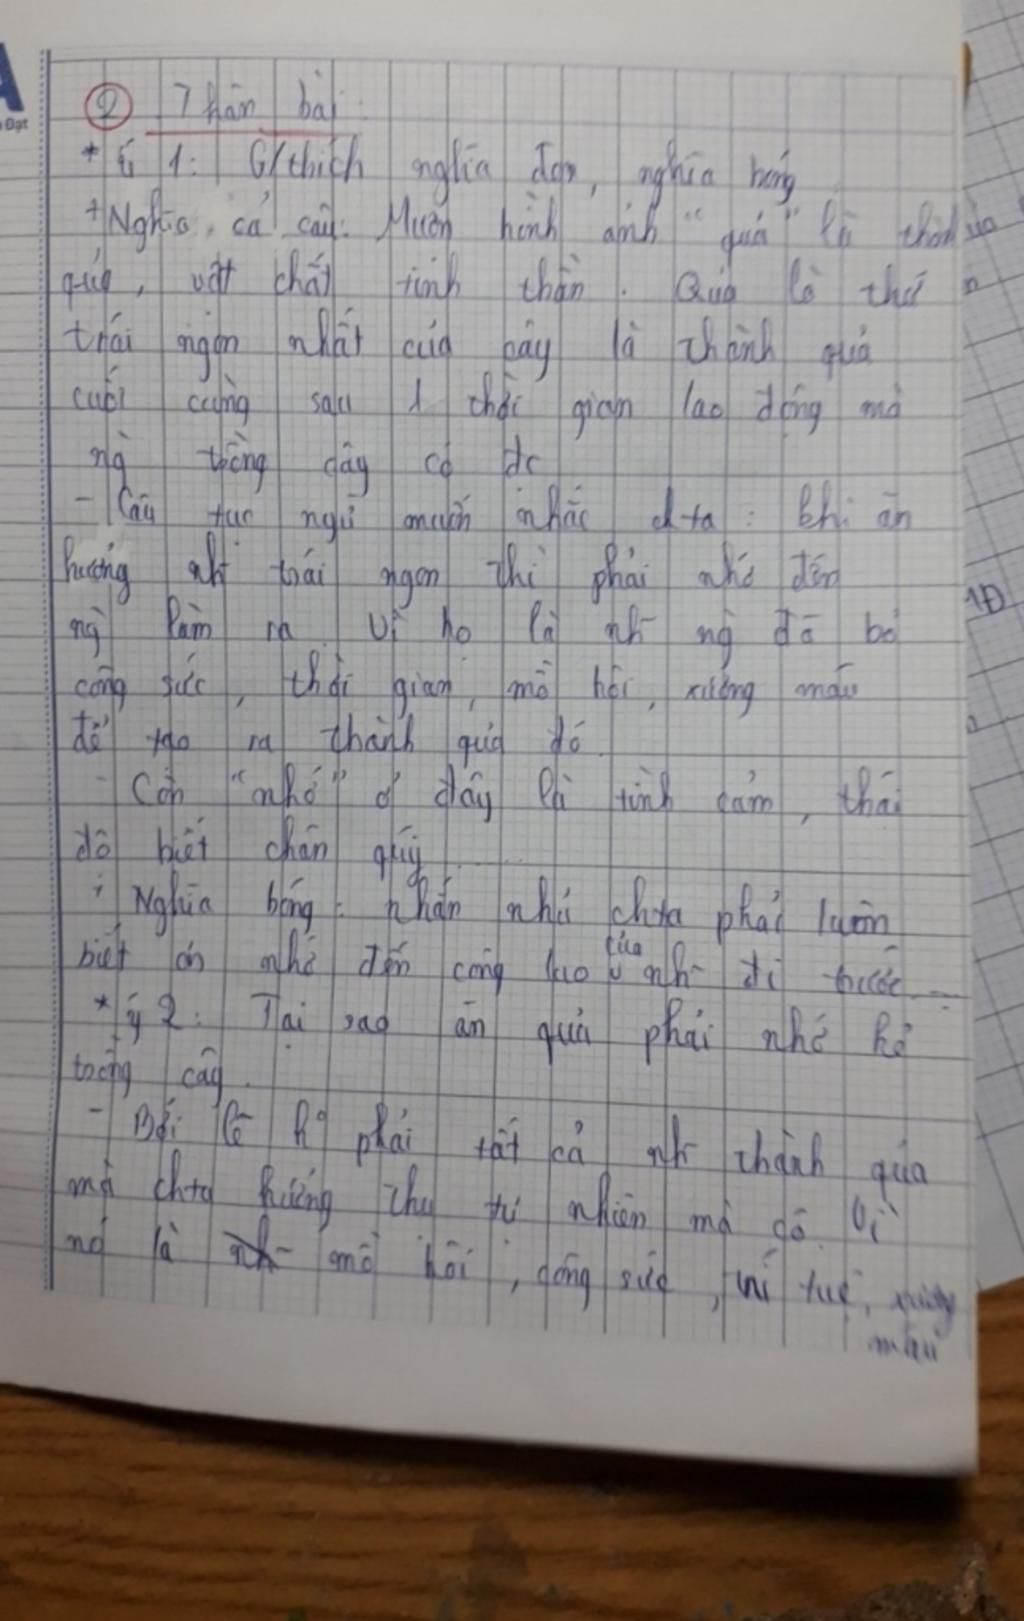 ② Thân bài
* Ý 1: G/thích nghĩa đen, nghĩa bóng
+ Nghĩa cả câu: Mượn hình ảnh "quả" là thành
quả, vật chất tinh thần. Quả là thứ
trái ngon nhất của cây là thành quả
cuối cùng sau 1 thời gian lao động mà
ng̀ trồng cây có đc
- Câu tục ngữ muốn nhắc chta: khi ăn
hưởng nh~ trái ngon thì phải nhớ đến
ng̀ làm ra vì họ là nh~ ng̀ đã bỏ
công sức, thời gian, mồ hôi, xương máu
để tạo ra thành quả đó.
- Còn "nhớ" ở đây là tình cảm, thái
độ biết chân quý
+ Nghĩa bóng: nhắn nhủ chta phải luôn
biết ơn nhớ đến công lao của nh~ đi trước
* Ý 2: Tại sao ăn quả phải nhớ kẻ
trồng cây.
- Bởi lẽ k° phải tất cả nh~ thành quả
mà chta hưởng thụ tự nhiên mà có. Vì
nó là mồ hôi, công sức, trí tuệ, xương
máu
1Đ
Đạt